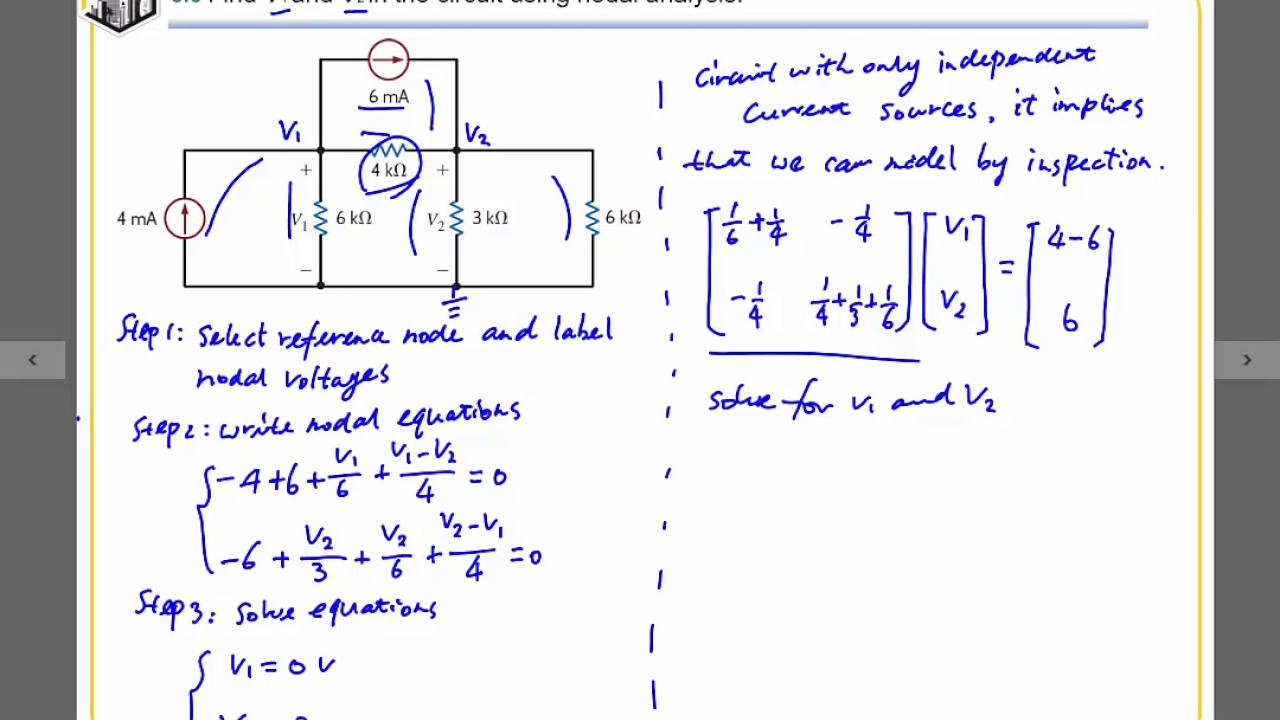 in the circuit using nodal analysis.
6 mA
V₁
V₂
4 kΩ
+
+
4 mA
V₁
6 kΩ
V₂
3 kΩ
6 kΩ
−
−
Step 1: Select reference node and label
nodal voltages
Step 2: write nodal equations
-4+6+V₁/6+(V₁-V₂)/4=0
-6+V₂/3+V₂/6+(V₂-V₁)/4=0
Step 3: Solve equations
V₁=0 V
Circuit with only independent
Current sources, it implies
that we can model by inspection.
[1/6+1/4 -1/4] [V₁] = [4-6]
[-1/4 1/4+1/3+1/6] [V₂] [6]
Solve for V₁ and V₂
<
>